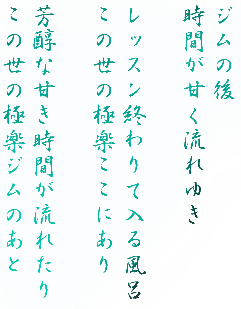 ジムの後
時間が甘く流れゆき
レッスン終わりて入る風呂
この世の極楽ここにあり
芳醇な甘き時間が流れたり
この世の極楽ジムのあと